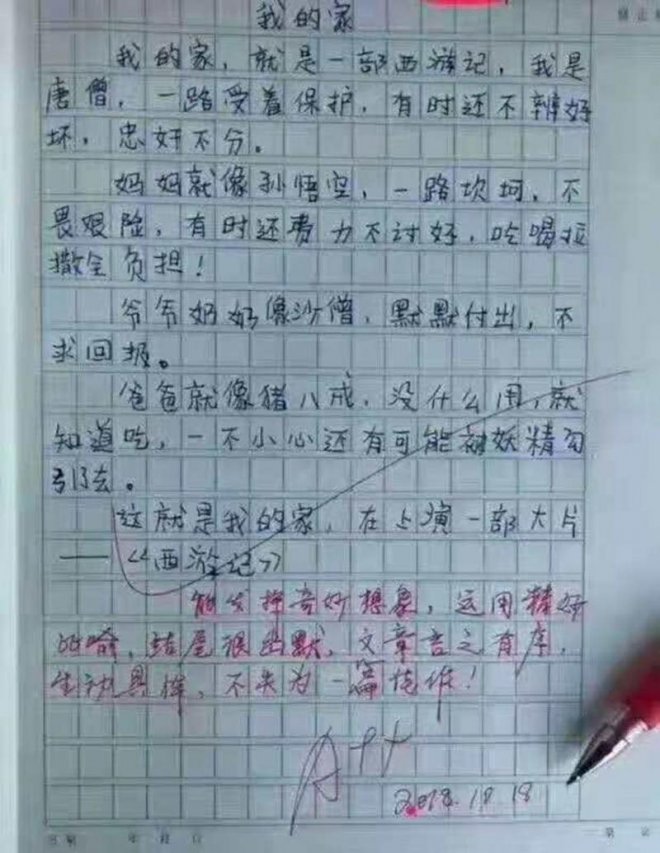 我的家
我的家,就是一部西游记,我是
唐僧,一路受着保护,有时还不辨好
坏,忠奸不分。
妈妈就像孙悟空,一路坎坷,不
畏艰险,有时还费力不讨好,吃喝拉
撒全负担!
爷爷奶奶像沙僧,默默付出,不
求回报。
爸爸就像猪八戒,没什么用,就
知道吃,一不小心还有可能被妖精勾
引去。
这就是我的家,在上演一部大片
——《西游记》
能发挥奇妙想象,运用精妙
比喻,结尾很幽默,文章言之有序,
生动具体,不失为一篇佳作!
A++
2018.10.18